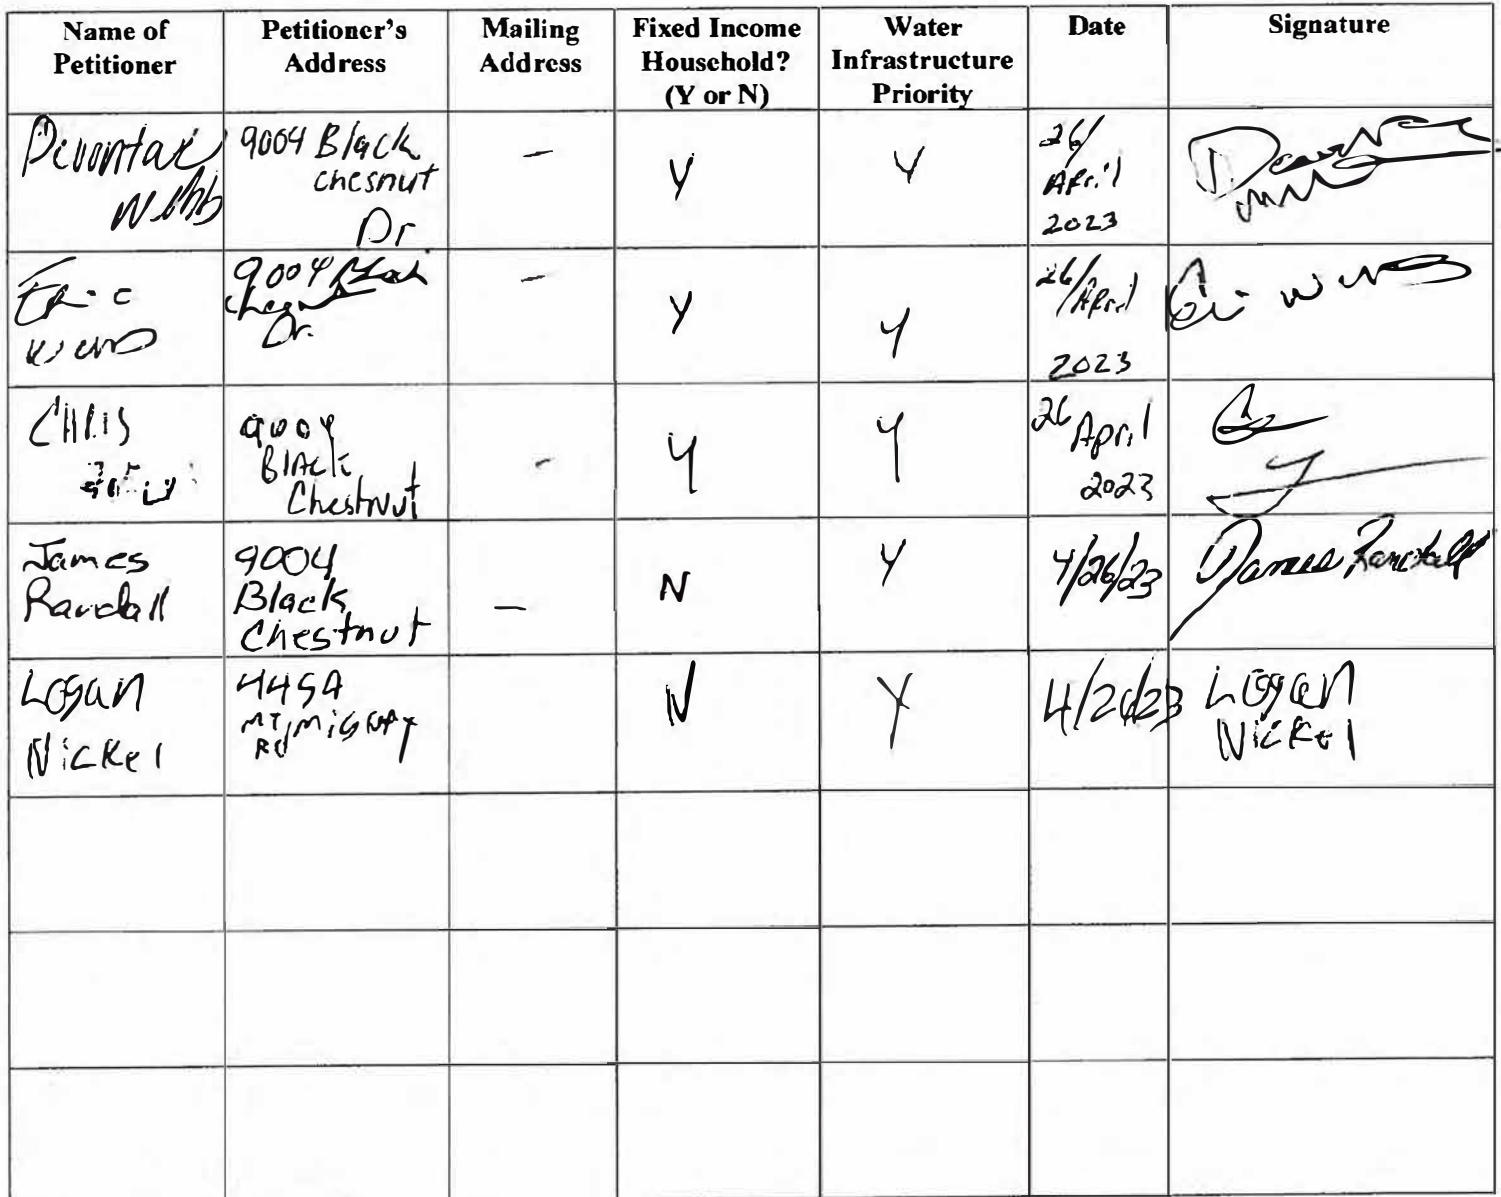 Name of Petitioner Petitioner's Address Mailing Address Fixed Income Household? (Y or N) Water Infrastructure Priority Date Signature
Devontae Webb
9004 Black
chesnut
Dr
—
Y
Y
26/
April
2023
Eric
9004 Black
Dr.
—
Y
Y
26/April
2023
CHRIS
9004
Black
Chestnut
-
Y
Y
26 April
2023
James
Randall
9004
Black
Chestnut
—
N
Y
4/26/23
James Randall
Logan
Nickel
445A
MT
Rd
N
Y
4/26/23
Logan
Nickel